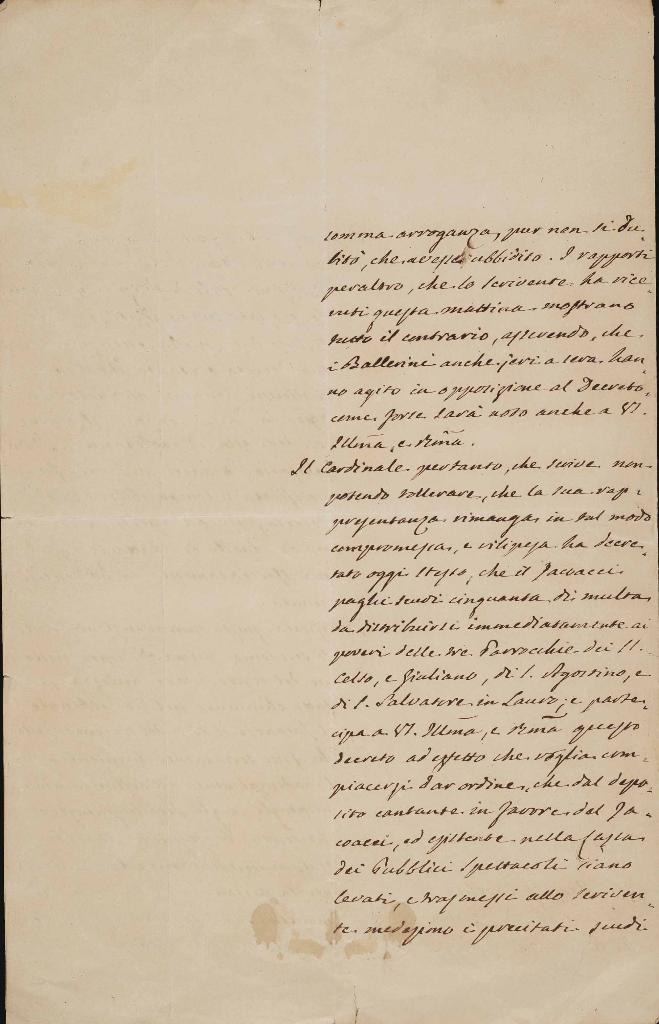 somma arroganza, pur non si du-
bitò, che avesse ubbidito. I rapporti
peraltro, che lo scrivente ha rice-
vuti questa mattina mostrano
tutto il contrario, asserendo, che
i Ballerini anche jeri a sera han-
no agito in opposizione al Decreto,
come forse sarà noto anche a V.
Illma, e Rma.
Il Cardinale pertanto, che scrive non
potendo tollerare, che la sua rap-
presentanza rimanga in tal modo
compromessa, e vilipesa ha decre-
tato oggi stesso, che il Jacovacci
paghi scudi cinquanta di multa
da distribuirsi immediatamente ai
poveri delle tre Parrocchie dei SS.
Celso, e Giuliano, di S. Agostino, e
di S. Salvatore in Lauro; e parte-
cipa a V. Illma, e Rma questo
decreto ad effetto che voglia com-
piacersi dar ordine, che dal depo-
sito cantante in favore del Ja-
covacci, ed esistente nella Cassa
dei Pubblici Spettacoli siano
levati, e trasmessi allo scriven-
te medesimo i precitati scudi